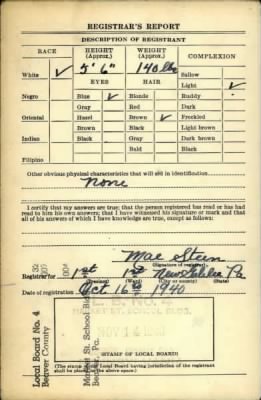 REGISTRAR'S REPORT
DESCRIPTION OF REGISTRANT
RACE HEIGHT (Approx.) WEIGHT (Approx.) COMPLEXION
White ✓ 5' 6" 140 lbs Sallow
EYES HAIR Light ✓
Negro Blue ✓ Blonde Ruddy
Gray Red Dark
Oriental Hazel Brown ✓ Freckled
Brown Black Light brown
Indian Black Gray Dark brown
Bald Black
Filipino
Other obvious physical characteristics that will aid in identification
None
I certify that my answers are true; that the person registered has read or has
had read to him his own answers; that I have witnessed his signature or mark and that
all of his answers of which I have knowledge are true, except as follows:
Mae Steen
(Signature of registrar)
Registrar for 1st 1st Pa
(Precinct) (Ward) (City or county) (State)
Date of registration Oct 16 1940
L. B. NO. 4
MARKET ST. SCHOOL BLDG.
NOV 14
Local Board No. 4
Beaver County
Market St. School
Pa.
(STAMP OF LOCAL BOARD)
(The stamp of the Local Board having jurisdiction of the registrant
shall be placed in the above space.)